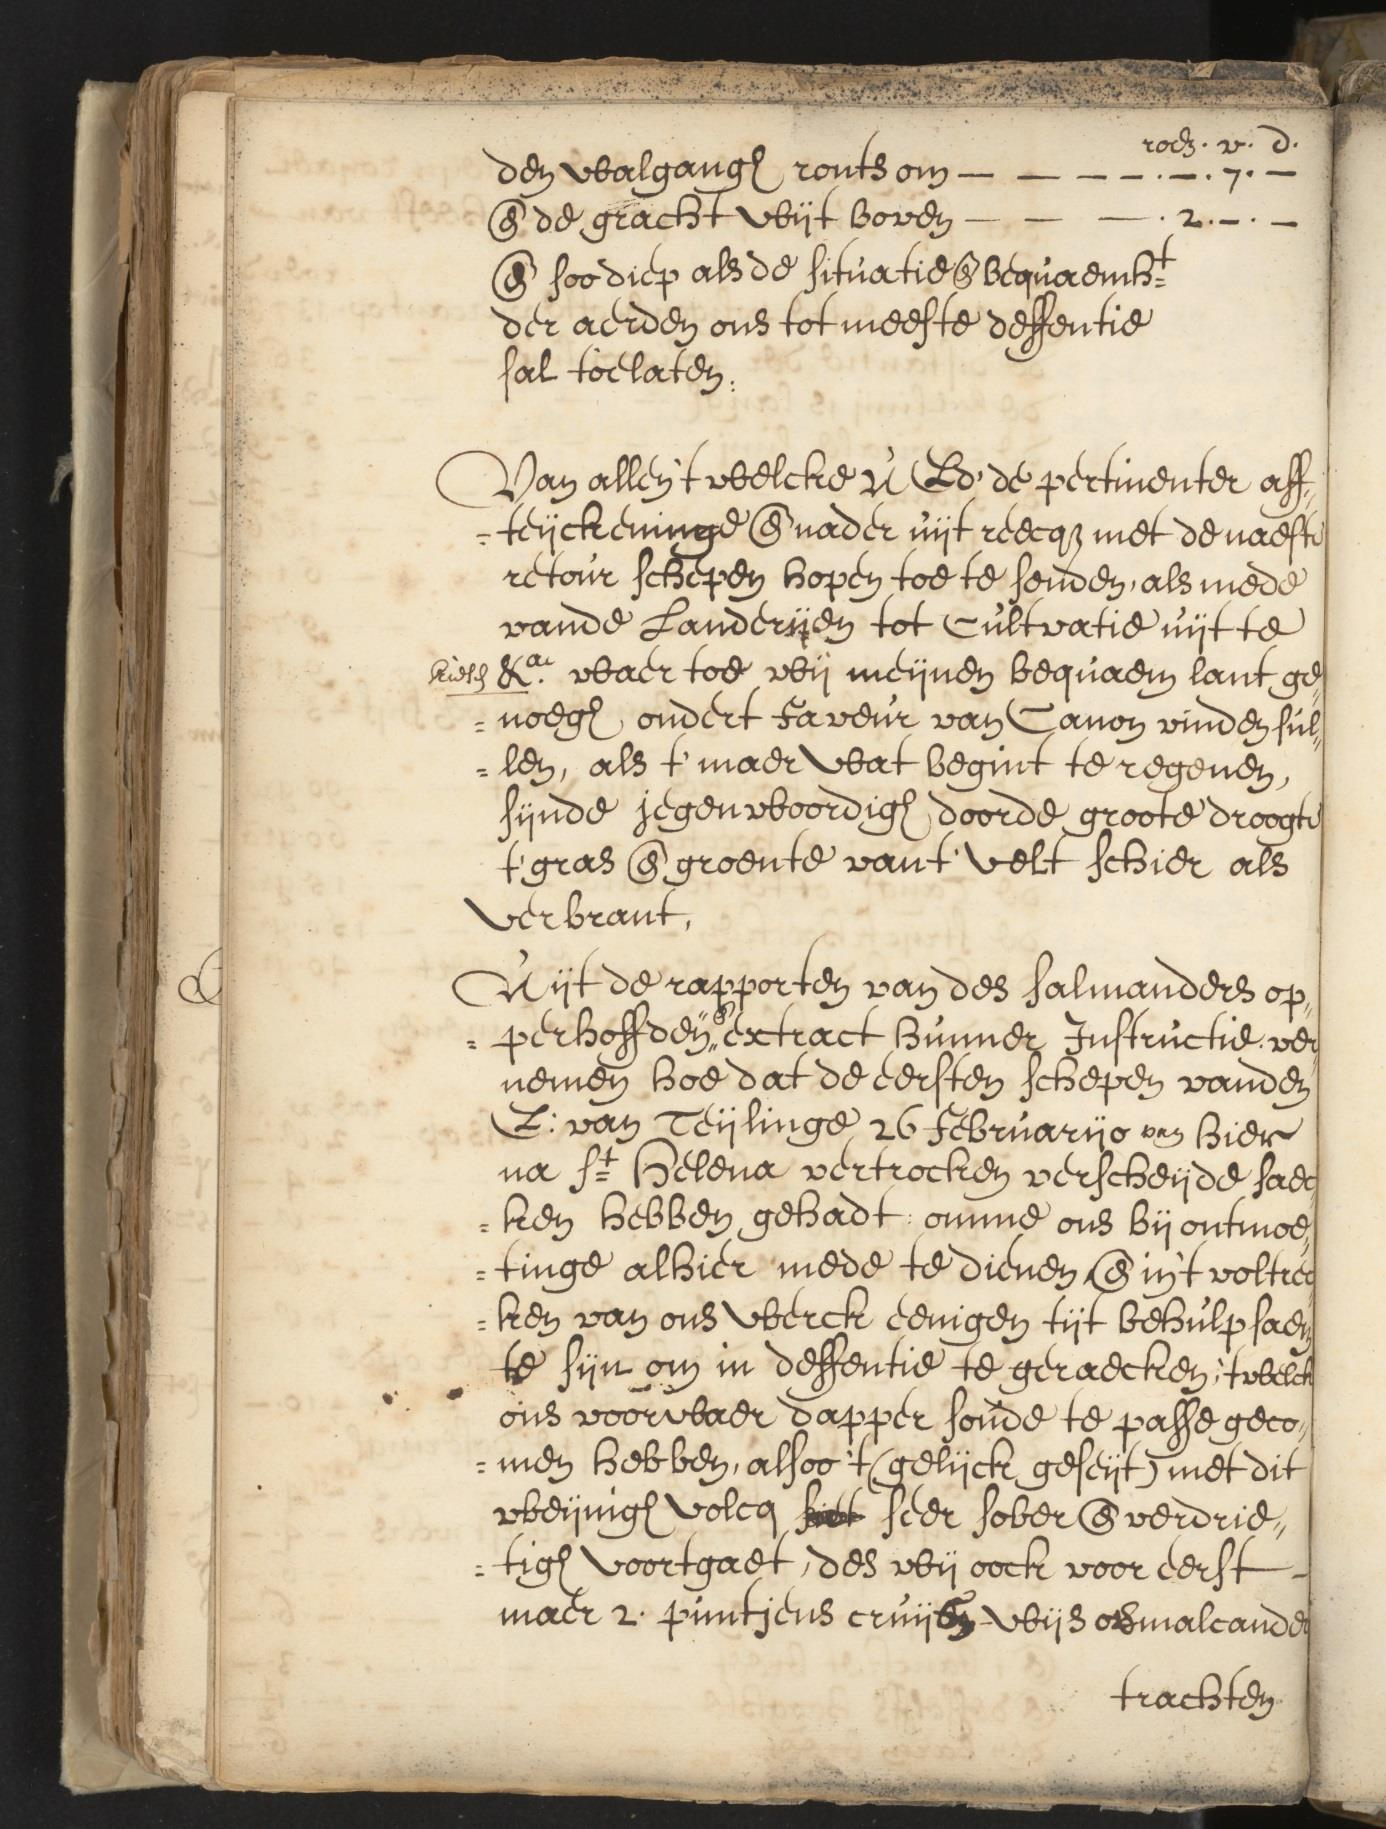 roed. v. d.
den walgangh rontsom — — — — . — . 7. —
en de gracht wijt boven — — — . 2. — . —
en soo diep als de situatie en bequaemht
der aerden ons tot meeste deffentie
sal toelaten.
Van allen't welcke U Ed. de pertinenter aff-
teijckeninge en nader uijt reecq met de naeste
retour schepen hopen toe te senden, als mede
vande Landerijen tot Cultvatie uijt te
&a. waer toe wij meijnen bequaem lant ge-
noegh ondert Faveur van Canon vinden sul-
len, als t' maer wat begint te regenen,
sijnde jegenwoordigh doorde groote droogte
t' gras en groente vant' velt schier als
verbrant,
Uijt de rapporten van des salmanders op-
perhoffden, en extract hunner Instructie ver
nemen hoe dat de eersten schepen vanden
E: van Teijlinge 26 Februarijo van hier
na st Helena vertrocken verscheijde saec
ken hebben gehadt omme ons bij ontmoe-
tinge alhier mede te dienen en in't voltrec
ken van ons werck eenigen tijt behulpsaem
te sijn om in deffentie te geraecken, 'twelck
ons voorwaer dapper soude te passe geco-
men hebben, alsoo 't (gelijck geseijt) met dit
weijnigh volcq seer sober en verdrie-
tigh voortgaet, des wij oock voor eerst
maer 2. puntjens cruijs wijs malcander
trachten